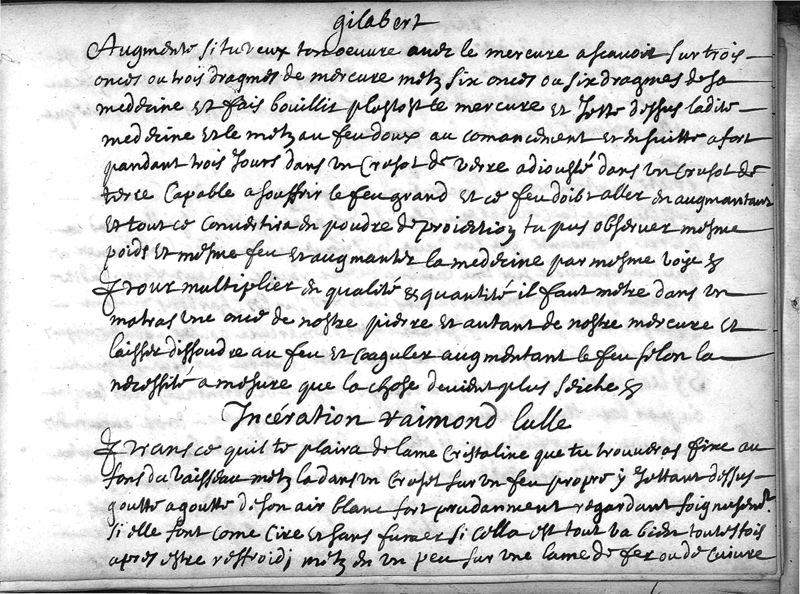 gilabert
Augmente si tu veux ton oeuvre avec le mercure ascavoir sur trois
onces ou trois dragmes de mercure metz six onces ou six dragmes de sa
medecine et fais bouillir plustost le mercure et Jette dessus ladite
medecine et le metz au feu doux au comancement et ensuitte a fort
pandant trois Jours dans un Crusot de verre adiousté dans un Crusot de
terre Capable a souffrir le feu grand et ce feu doibt aller en augmantant
et tout ce convertira en poudre de proiection tu pus observer mesme
poids et mesme feu et augmanter la medecine par mesme voye
pour multiplier en qualité et quantité il faut mètre dans un
matras une once de nostre pierre et autant de nostre mercure et
laisser dissoudre au feu et coaguler augmentant le feu selon la
necessité a mesure que la chose devient plus seiche
Incération raimond lulle
prans ce quil te plaira de lame Cristaline que tu trouveras fixe au
fons du vaisseau metz la dans un Croset sur un feu propre y Jettant dessus
goutte a goutte de son air blanc fort prudanment regardant soigneusemt
si elle font come Cire et sans fumer si cella est tout va bien toutesfois
apres estre reffroidi metz en un peu sur une lame de fer ou de cuivre